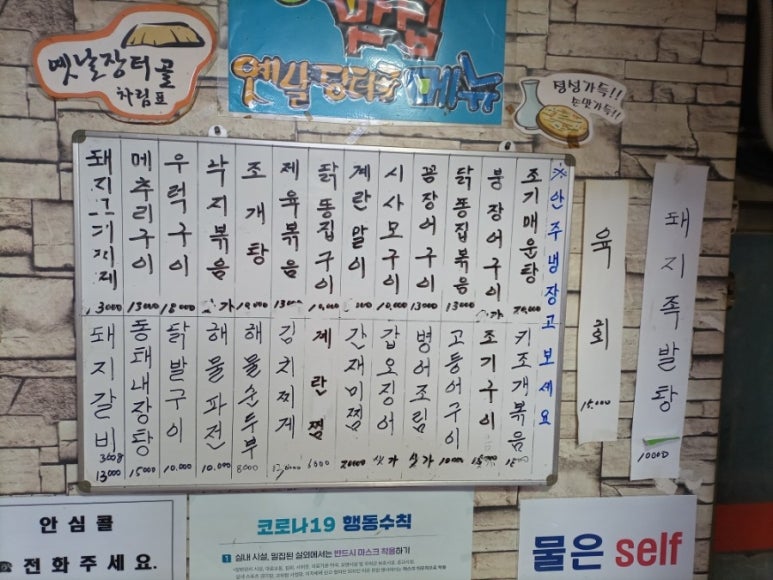 옛날장터골
차림표
메뉴
정성가득!!
손맛가득!!
※안주냉장고 보세요
조기매운탕 20,000
붕장어구이 싯가
닭똥집볶음 13000
꼼장어구이 13000
시사모구이 10,000
계란말이
닭똥집구이 10,000
제육볶음
조개탕
낙지볶음 싯가
우럭구이 18000
메추리구이 13000
돼지
키조개볶음
조기구이
고등어구이
병어조림 싯가
갑오징어 싯가
간재미찜 20000
계란찜
김치찌게
해물순두부 8000
해물파전 10.000
닭발구이 10.000
동태내장탕 15000
돼지갈비 300g 13000
육회 15.000
돼지족발탕 10000
안심콜
☎ 전화주세요.
코로나19 행동수칙
1 실내 시설, 밀집된 실외에서는 반드시 마스크 착용하기
물은 self